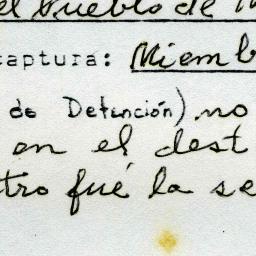 el pueblo de
captura: Miemb
de Detención) no
en el dest
tro fué la se